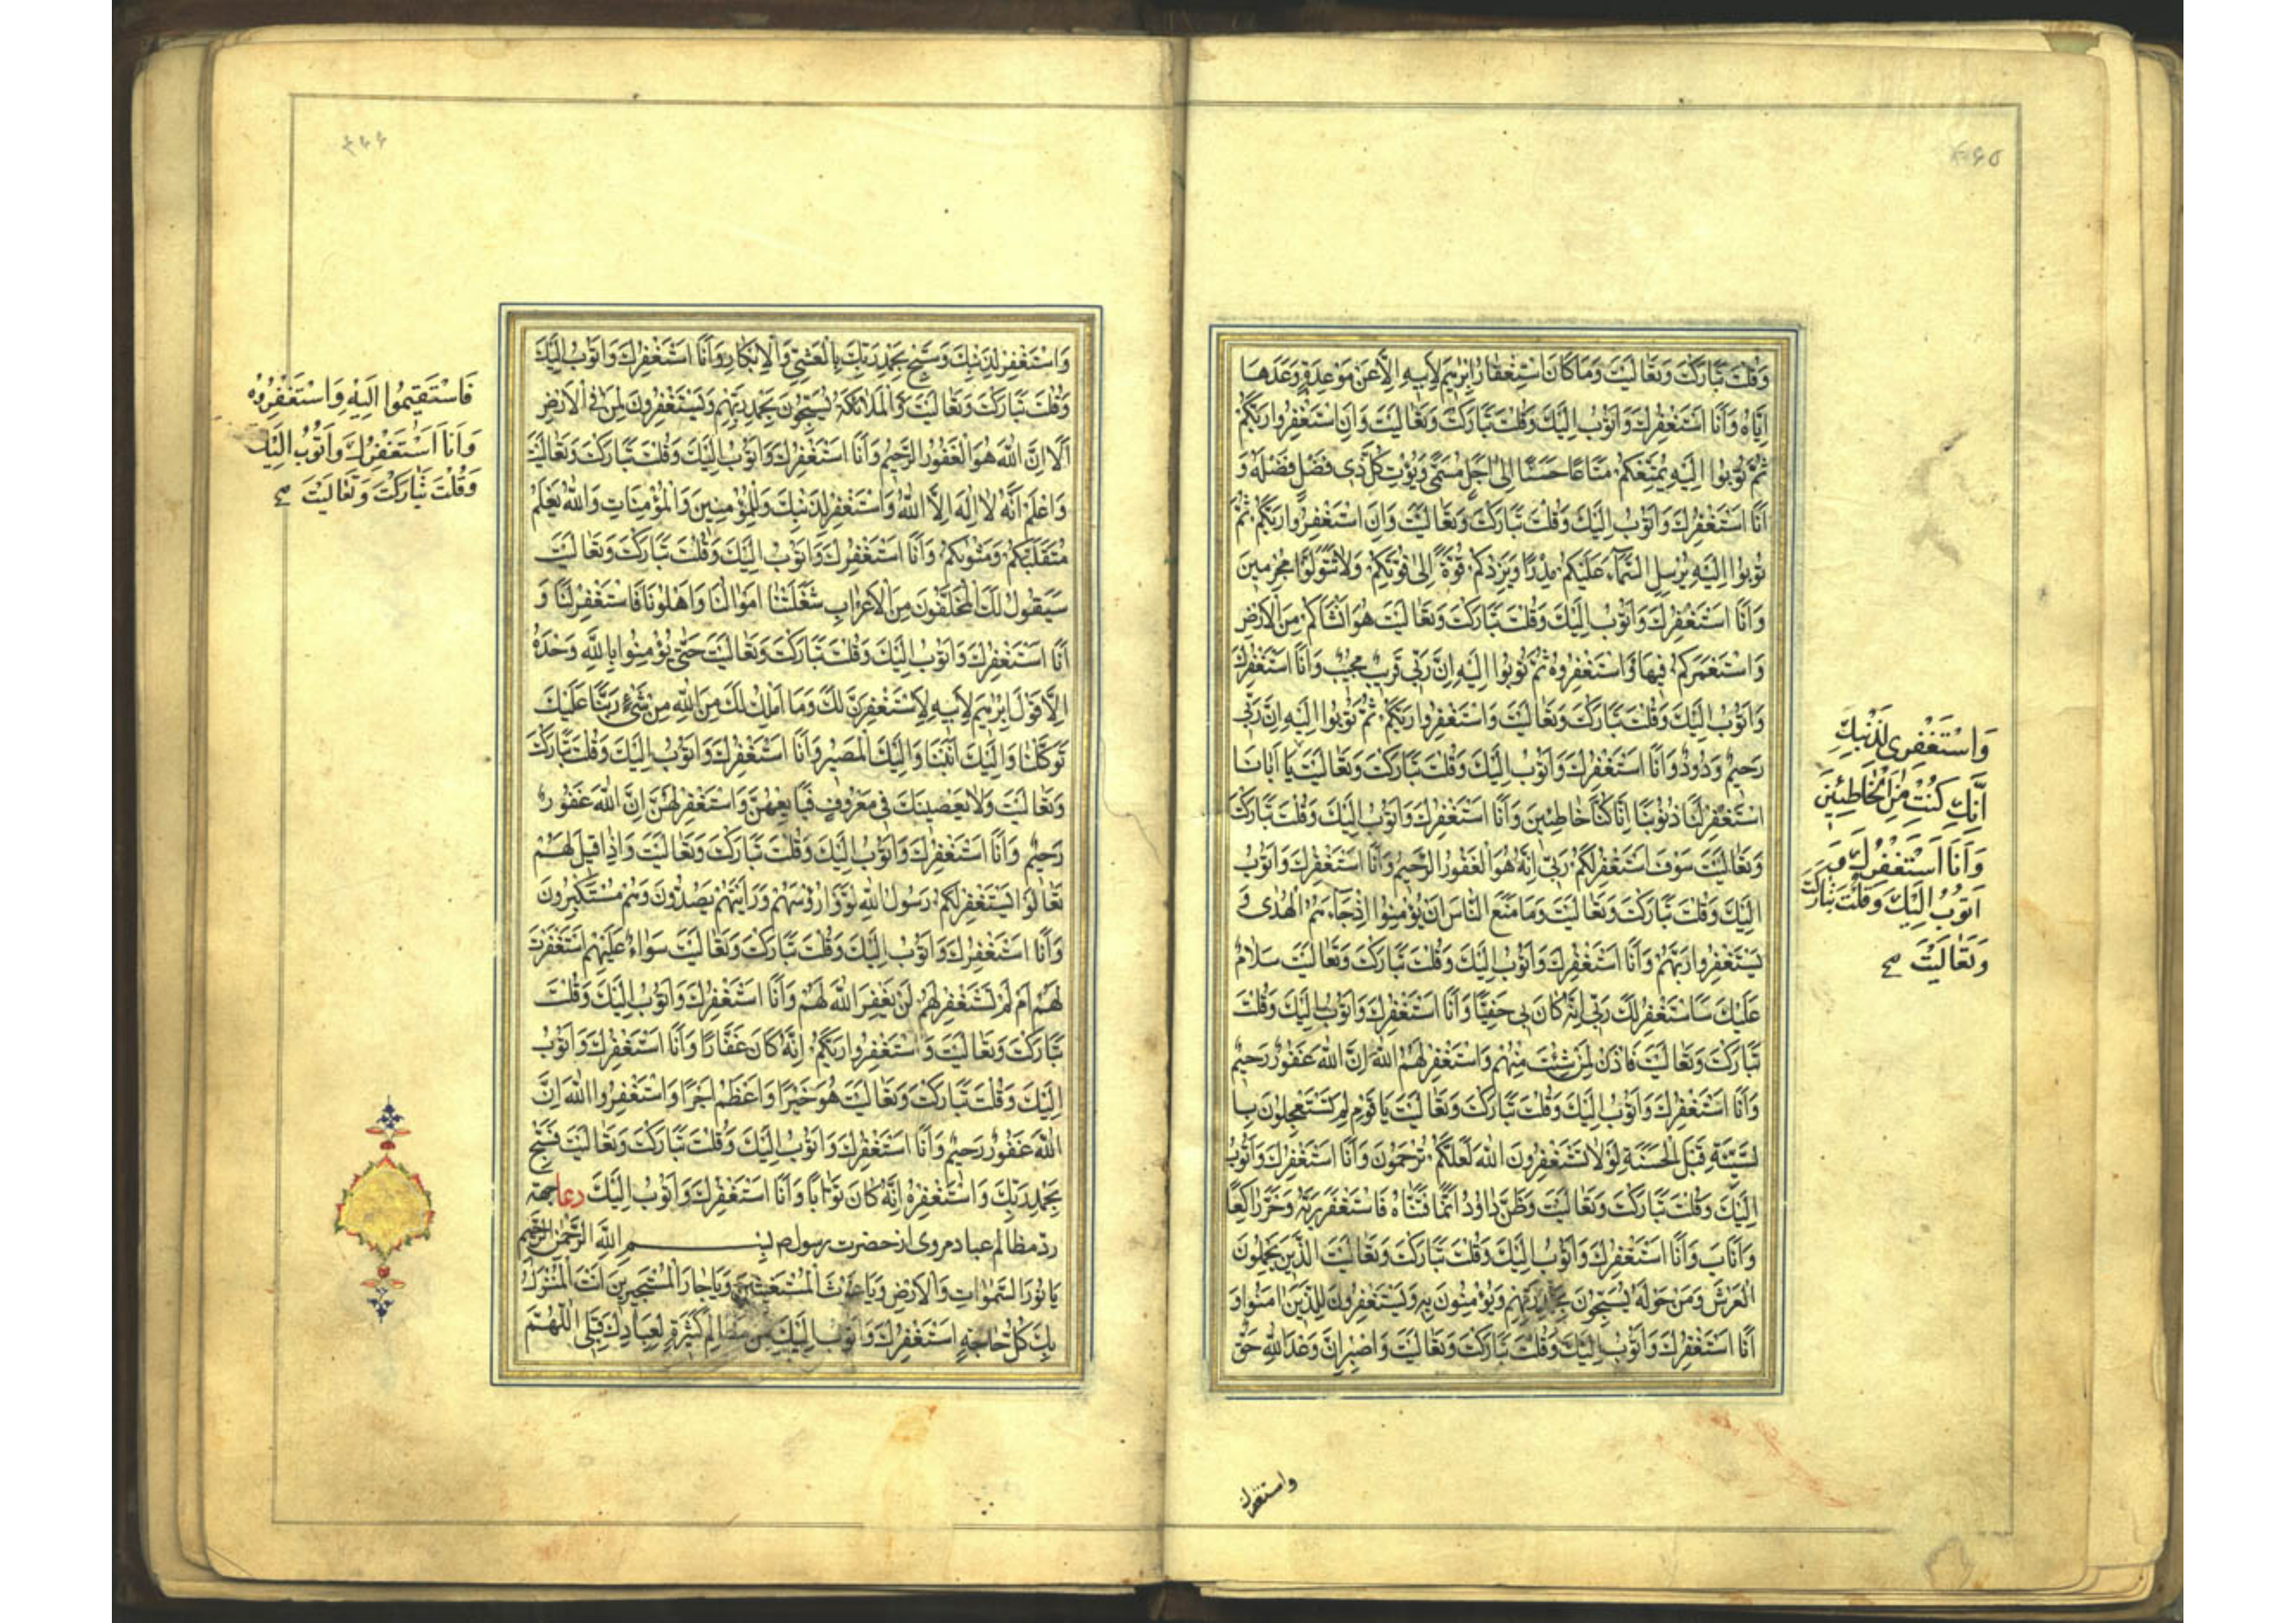 ٤٦٥
وَقُلْتَ تَبَارَكْتَ وَتَعَالَيْتَ وَمَا كَانَ اسْتِغْفَارُ اِبْرٰهِيمَ لِاَبِيهِ اِلَّا عَنْ مَوْعِدَةٍ وَعَدَهَا
اِيَّاهُ وَاَنَا اَسْتَغْفِرُكَ وَاَتُوبُ اِلَيْكَ وَقُلْتَ تَبَارَكْتَ وَتَعَالَيْتَ وَاَنِ اسْتَغْفِرُوا رَبَّكُمْ
ثُمَّ تُوبُوا اِلَيْهِ يُمَتِّعْكُمْ مَتَاعًا حَسَنًا اِلٰى اَجَلٍ مُسَمًّى وَيُؤْتِ كُلَّ ذِى فَضْلٍ فَضْلَهُ وَ
اَنَا اَسْتَغْفِرُكَ وَاَتُوبُ اِلَيْكَ وَقُلْتَ تَبَارَكْتَ وَتَعَالَيْتَ وَاَنِ اسْتَغْفِرُوا رَبَّكُمْ ثُمَّ
تُوبُوا اِلَيْهِ يُرْسِلِ السَّمَآءَ عَلَيْكُمْ مِدْرَارًا وَيَزِدْكُمْ قُوَّةً اِلٰى قُوَّتِكُمْ وَلَا تَتَوَلَّوْا مُجْرِمِينَ
وَاَنَا اَسْتَغْفِرُكَ وَاَتُوبُ اِلَيْكَ وَقُلْتَ تَبَارَكْتَ وَتَعَالَيْتَ هُوَ اَنْشَاَكُمْ مِنَ الْاَرْضِ
وَاسْتَعْمَرَكُمْ فِيهَا فَاسْتَغْفِرُوهُ ثُمَّ تُوبُوا اِلَيْهِ اِنَّ رَبِّى قَرِيبٌ مُجِيبٌ وَاَنَا اَسْتَغْفِرُكَ
وَاَتُوبُ اِلَيْكَ وَقُلْتَ تَبَارَكْتَ وَتَعَالَيْتَ وَاسْتَغْفِرُوا رَبَّكُمْ ثُمَّ تُوبُوا اِلَيْهِ اِنَّ رَبِّى
رَحِيمٌ وَدُودٌ وَاَنَا اَسْتَغْفِرُكَ وَاَتُوبُ اِلَيْكَ وَقُلْتَ تَبَارَكْتَ وَتَعَالَيْتَ يَا اَبَانَا
اسْتَغْفِرْ لَنَا ذُنُوبَنَا اِنَّا كُنَّا خَاطِئِينَ وَاَنَا اَسْتَغْفِرُكَ وَاَتُوبُ اِلَيْكَ وَقُلْتَ تَبَارَكْتَ
وَتَعَالَيْتَ سَوْفَ اَسْتَغْفِرُ لَكُمْ رَبِّى اِنَّهُ هُوَ الْغَفُورُ الرَّحِيمُ وَاَنَا اَسْتَغْفِرُكَ وَاَتُوبُ
اِلَيْكَ وَقُلْتَ تَبَارَكْتَ وَتَعَالَيْتَ وَمَا مَنَعَ النَّاسَ اَنْ يُؤْمِنُوا اِذْ جَآءَهُمُ الْهُدٰى وَ
يَسْتَغْفِرُوا رَبَّهُمْ وَاَنَا اَسْتَغْفِرُكَ وَاَتُوبُ اِلَيْكَ وَقُلْتَ تَبَارَكْتَ وَتَعَالَيْتَ سَلَامٌ
عَلَيْكَ سَاَسْتَغْفِرُ لَكَ رَبِّى اِنَّهُ كَانَ بِى حَفِيًّا وَاَنَا اَسْتَغْفِرُكَ وَاَتُوبُ اِلَيْكَ وَقُلْتَ
تَبَارَكْتَ وَتَعَالَيْتَ فَأْذَنْ لِمَنْ شِئْتَ مِنْهُمْ وَاسْتَغْفِرْ لَهُمُ اللّٰهَ اِنَّ اللّٰهَ غَفُورٌ رَحِيمٌ
وَاَنَا اَسْتَغْفِرُكَ وَاَتُوبُ اِلَيْكَ وَقُلْتَ تَبَارَكْتَ وَتَعَالَيْتَ يَا قَوْمِ لِمَ تَسْتَعْجِلُونَ بِا
لسَّيِّئَةِ قَبْلَ الْحَسَنَةِ لَوْلَا تَسْتَغْفِرُونَ اللّٰهَ لَعَلَّكُمْ تُرْحَمُونَ وَاَنَا اَسْتَغْفِرُكَ وَاَتُوبُ
اِلَيْكَ وَقُلْتَ تَبَارَكْتَ وَتَعَالَيْتَ وَظَنَّ دَاوُدُ اَنَّمَا فَتَنَّاهُ فَاسْتَغْفَرَ رَبَّهُ وَخَرَّ رَاكِعًا
وَاَنَابَ وَاَنَا اَسْتَغْفِرُكَ وَاَتُوبُ اِلَيْكَ وَقُلْتَ تَبَارَكْتَ وَتَعَالَيْتَ الَّذِينَ يَحْمِلُونَ
الْعَرْشَ وَمَنْ حَوْلَهُ يُسَبِّحُونَ بِحَمْدِ رَبِّهِمْ وَيُؤْمِنُونَ بِهِ وَيَسْتَغْفِرُونَ لِلَّذِينَ اٰمَنُوا وَ
اَنَا اَسْتَغْفِرُكَ وَاَتُوبُ اِلَيْكَ وَقُلْتَ تَبَارَكْتَ وَتَعَالَيْتَ وَاصْبِرْ اِنَّ وَعْدَ اللّٰهِ حَقٌّ
وَاسْتَغْفِرِى لِذَنْبِكِ
اِنَّكِ كُنْتِ مِنَ الْخَاطِئِينَ
وَاَنَا اَسْتَغْفِرُكَ وَ
اَتُوبُ اِلَيْكَ وَقُلْتَ تَبَارَكْتَ
وَتَعَالَيْتَ صح
٤٦٦
وَاسْتَغْفِرْ لِذَنْبِكَ وَسَبِّحْ بِحَمْدِ رَبِّكَ بِالْعَشِىِّ وَالْاِبْكَارِ وَاَنَا اَسْتَغْفِرُكَ وَاَتُوبُ اِلَيْكَ
وَقُلْتَ تَبَارَكْتَ وَتَعَالَيْتَ وَالْمَلَائِكَةُ يُسَبِّحُونَ بِحَمْدِ رَبِّهِمْ وَيَسْتَغْفِرُونَ لِمَنْ فِى الْاَرْضِ
اَلَا اِنَّ اللّٰهَ هُوَ الْغَفُورُ الرَّحِيمُ وَاَنَا اَسْتَغْفِرُكَ وَاَتُوبُ اِلَيْكَ وَقُلْتَ تَبَارَكْتَ وَتَعَالَيْتَ
وَاعْلَمْ اَنَّهُ لَا اِلٰهَ اِلَّا اللّٰهُ وَاسْتَغْفِرْ لِذَنْبِكَ وَلِلْمُؤْمِنِينَ وَالْمُؤْمِنَاتِ وَاللّٰهُ يَعْلَمُ
مُتَقَلَّبَكُمْ وَمَثْوٰيكُمْ وَاَنَا اَسْتَغْفِرُكَ وَاَتُوبُ اِلَيْكَ وَقُلْتَ تَبَارَكْتَ وَتَعَالَيْتَ
سَيَقُولُ لَكَ الْمُخَلَّفُونَ مِنَ الْاَعْرَابِ شَغَلَتْنَا اَمْوَالُنَا وَاَهْلُونَا فَاسْتَغْفِرْ لَنَا وَ
اَنَا اَسْتَغْفِرُكَ وَاَتُوبُ اِلَيْكَ وَقُلْتَ تَبَارَكْتَ وَتَعَالَيْتَ حَتّٰى تُؤْمِنُوا بِاللّٰهِ وَحْدَهُ
اِلَّا قَوْلَ اِبْرٰهِيمَ لِاَبِيهِ لَاَسْتَغْفِرَنَّ لَكَ وَمَا اَمْلِكُ لَكَ مِنَ اللّٰهِ مِنْ شَىْءٍ رَبَّنَا عَلَيْكَ
تَوَكَّلْنَا وَاِلَيْكَ اَنَبْنَا وَاِلَيْكَ الْمَصِيرُ وَاَنَا اَسْتَغْفِرُكَ وَاَتُوبُ اِلَيْكَ وَقُلْتَ تَبَارَكْتَ
وَتَعَالَيْتَ وَلَا يَعْصِينَكَ فِى مَعْرُوفٍ فَبَايِعْهُنَّ وَاسْتَغْفِرْ لَهُنَّ اِنَّ اللّٰهَ غَفُورٌ
رَحِيمٌ وَاَنَا اَسْتَغْفِرُكَ وَاَتُوبُ اِلَيْكَ وَقُلْتَ تَبَارَكْتَ وَتَعَالَيْتَ وَاِذَا قِيلَ لَهُمْ
تَعَالَوْا يَسْتَغْفِرْ لَكُمْ رَسُولُ اللّٰهِ لَوَّوْا رُؤُسَهُمْ وَرَاَيْتَهُمْ يَصُدُّونَ وَهُمْ مُسْتَكْبِرُونَ
وَاَنَا اَسْتَغْفِرُكَ وَاَتُوبُ اِلَيْكَ وَقُلْتَ تَبَارَكْتَ وَتَعَالَيْتَ سَوَاءٌ عَلَيْهِمْ اَسْتَغْفَرْتَ
لَهُمْ اَمْ لَمْ تَسْتَغْفِرْ لَهُمْ لَنْ يَغْفِرَ اللّٰهُ لَهُمْ وَاَنَا اَسْتَغْفِرُكَ وَاَتُوبُ اِلَيْكَ وَقُلْتَ
تَبَارَكْتَ وَتَعَالَيْتَ وَاسْتَغْفِرُوا رَبَّكُمْ اِنَّهُ كَانَ غَفَّارًا وَاَنَا اَسْتَغْفِرُكَ وَاَتُوبُ
اِلَيْكَ وَقُلْتَ تَبَارَكْتَ وَتَعَالَيْتَ هُوَ خَيْرًا وَاَعْظَمَ اَجْرًا وَاسْتَغْفِرُوا اللّٰهَ اِنَّ
اللّٰهَ غَفُورٌ رَحِيمٌ وَاَنَا اَسْتَغْفِرُكَ وَاَتُوبُ اِلَيْكَ وَقُلْتَ تَبَارَكْتَ وَتَعَالَيْتَ فَسَبِّحْ
بِحَمْدِ رَبِّكَ وَاسْتَغْفِرْهُ اِنَّهُ كَانَ تَوَّابًا وَاَنَا اَسْتَغْفِرُكَ وَاَتُوبُ اِلَيْكَ دعا جهة
ردّ مظالم عباد مروى از حضرت رسول ص بِسْمِ اللّٰهِ الرَّحْمٰنِ الرَّحِيمِ
يَا نُورَ السَّمٰوَاتِ وَالْاَرْضِ وَيَا غِيَاثَ الْمُسْتَغِيثِينَ وَيَا جَارَ الْمُسْتَجِيرِينَ اَنْتَ الْمَنْزُولُ
بِكَ كُلُّ حَاجَةٍ اَسْتَغْفِرُكَ وَاَتُوبُ اِلَيْكَ مِنْ مَظَالِمَ كَثِيرَةٍ لِعِبَادِكَ قِبَلِى اَللّٰهُمَّ
فَاسْتَقِيمُوا اِلَيْهِ وَاسْتَغْفِرُوهُ
وَاَنَا اَسْتَغْفِرُكَ وَاَتُوبُ اِلَيْكَ
وَقُلْتَ تَبَارَكْتَ وَتَعَالَيْتَ صح